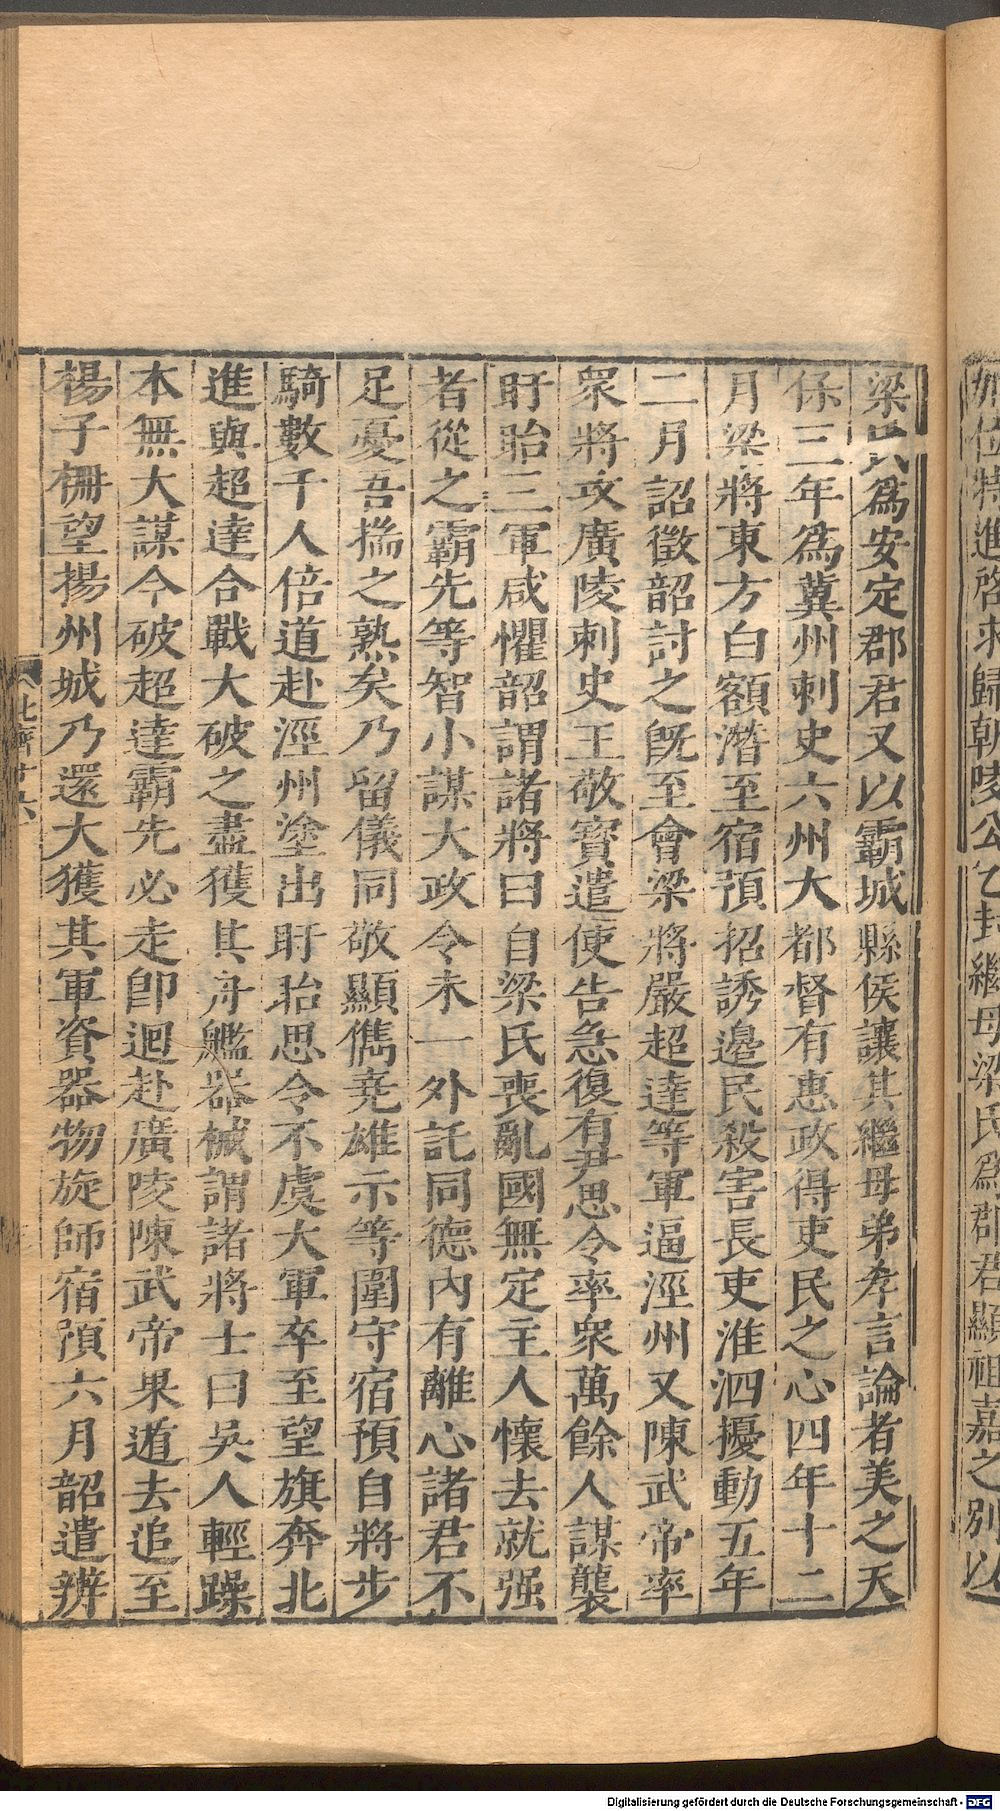 加位特進啓求歸朝陵公乞封繼母梁氏爲郡君顯祖嘉之別以
梁氏爲安定郡君又以霸城縣侯讓其繼母弟孝言論者美之天
保三年爲冀州刺史六州大都督有惠政得吏民之心四年十二
月梁將東方白額潛至宿預招誘邉民殺害長吏淮泗擾動五年
二月詔徵韶討之旣至會梁將嚴超達等軍逼涇州又陳武帝率
衆將攻廣陵刺史王敬寶遣使告急復有尹思令率衆萬餘人謀襲
盱眙三軍咸懼韶謂諸將曰自梁氏喪亂國無定主人懷去就强
者從之霸先等智小謀大政令未一外託同德內有離心諸君不
足憂吾揣之熟矣乃留儀同敬顯儁堯雄示等圍守宿預自將步
騎數千人倍道赴涇州塗出盱眙思令不虞大軍卒至望旗奔北
進與超達合戰大破之盡獲其舟艦器械謂諸將士曰吳人輕躁
本無大謀今破超達霸先必走卽迴赴廣陵陳武帝果遁去追至
楊子柵望揚州城乃還大獲其軍資器物旋師宿預六月韶遣辨
北齊十六
Digitalisierung gefördert durch die Deutsche Forschungsgemeinschaft - DFG